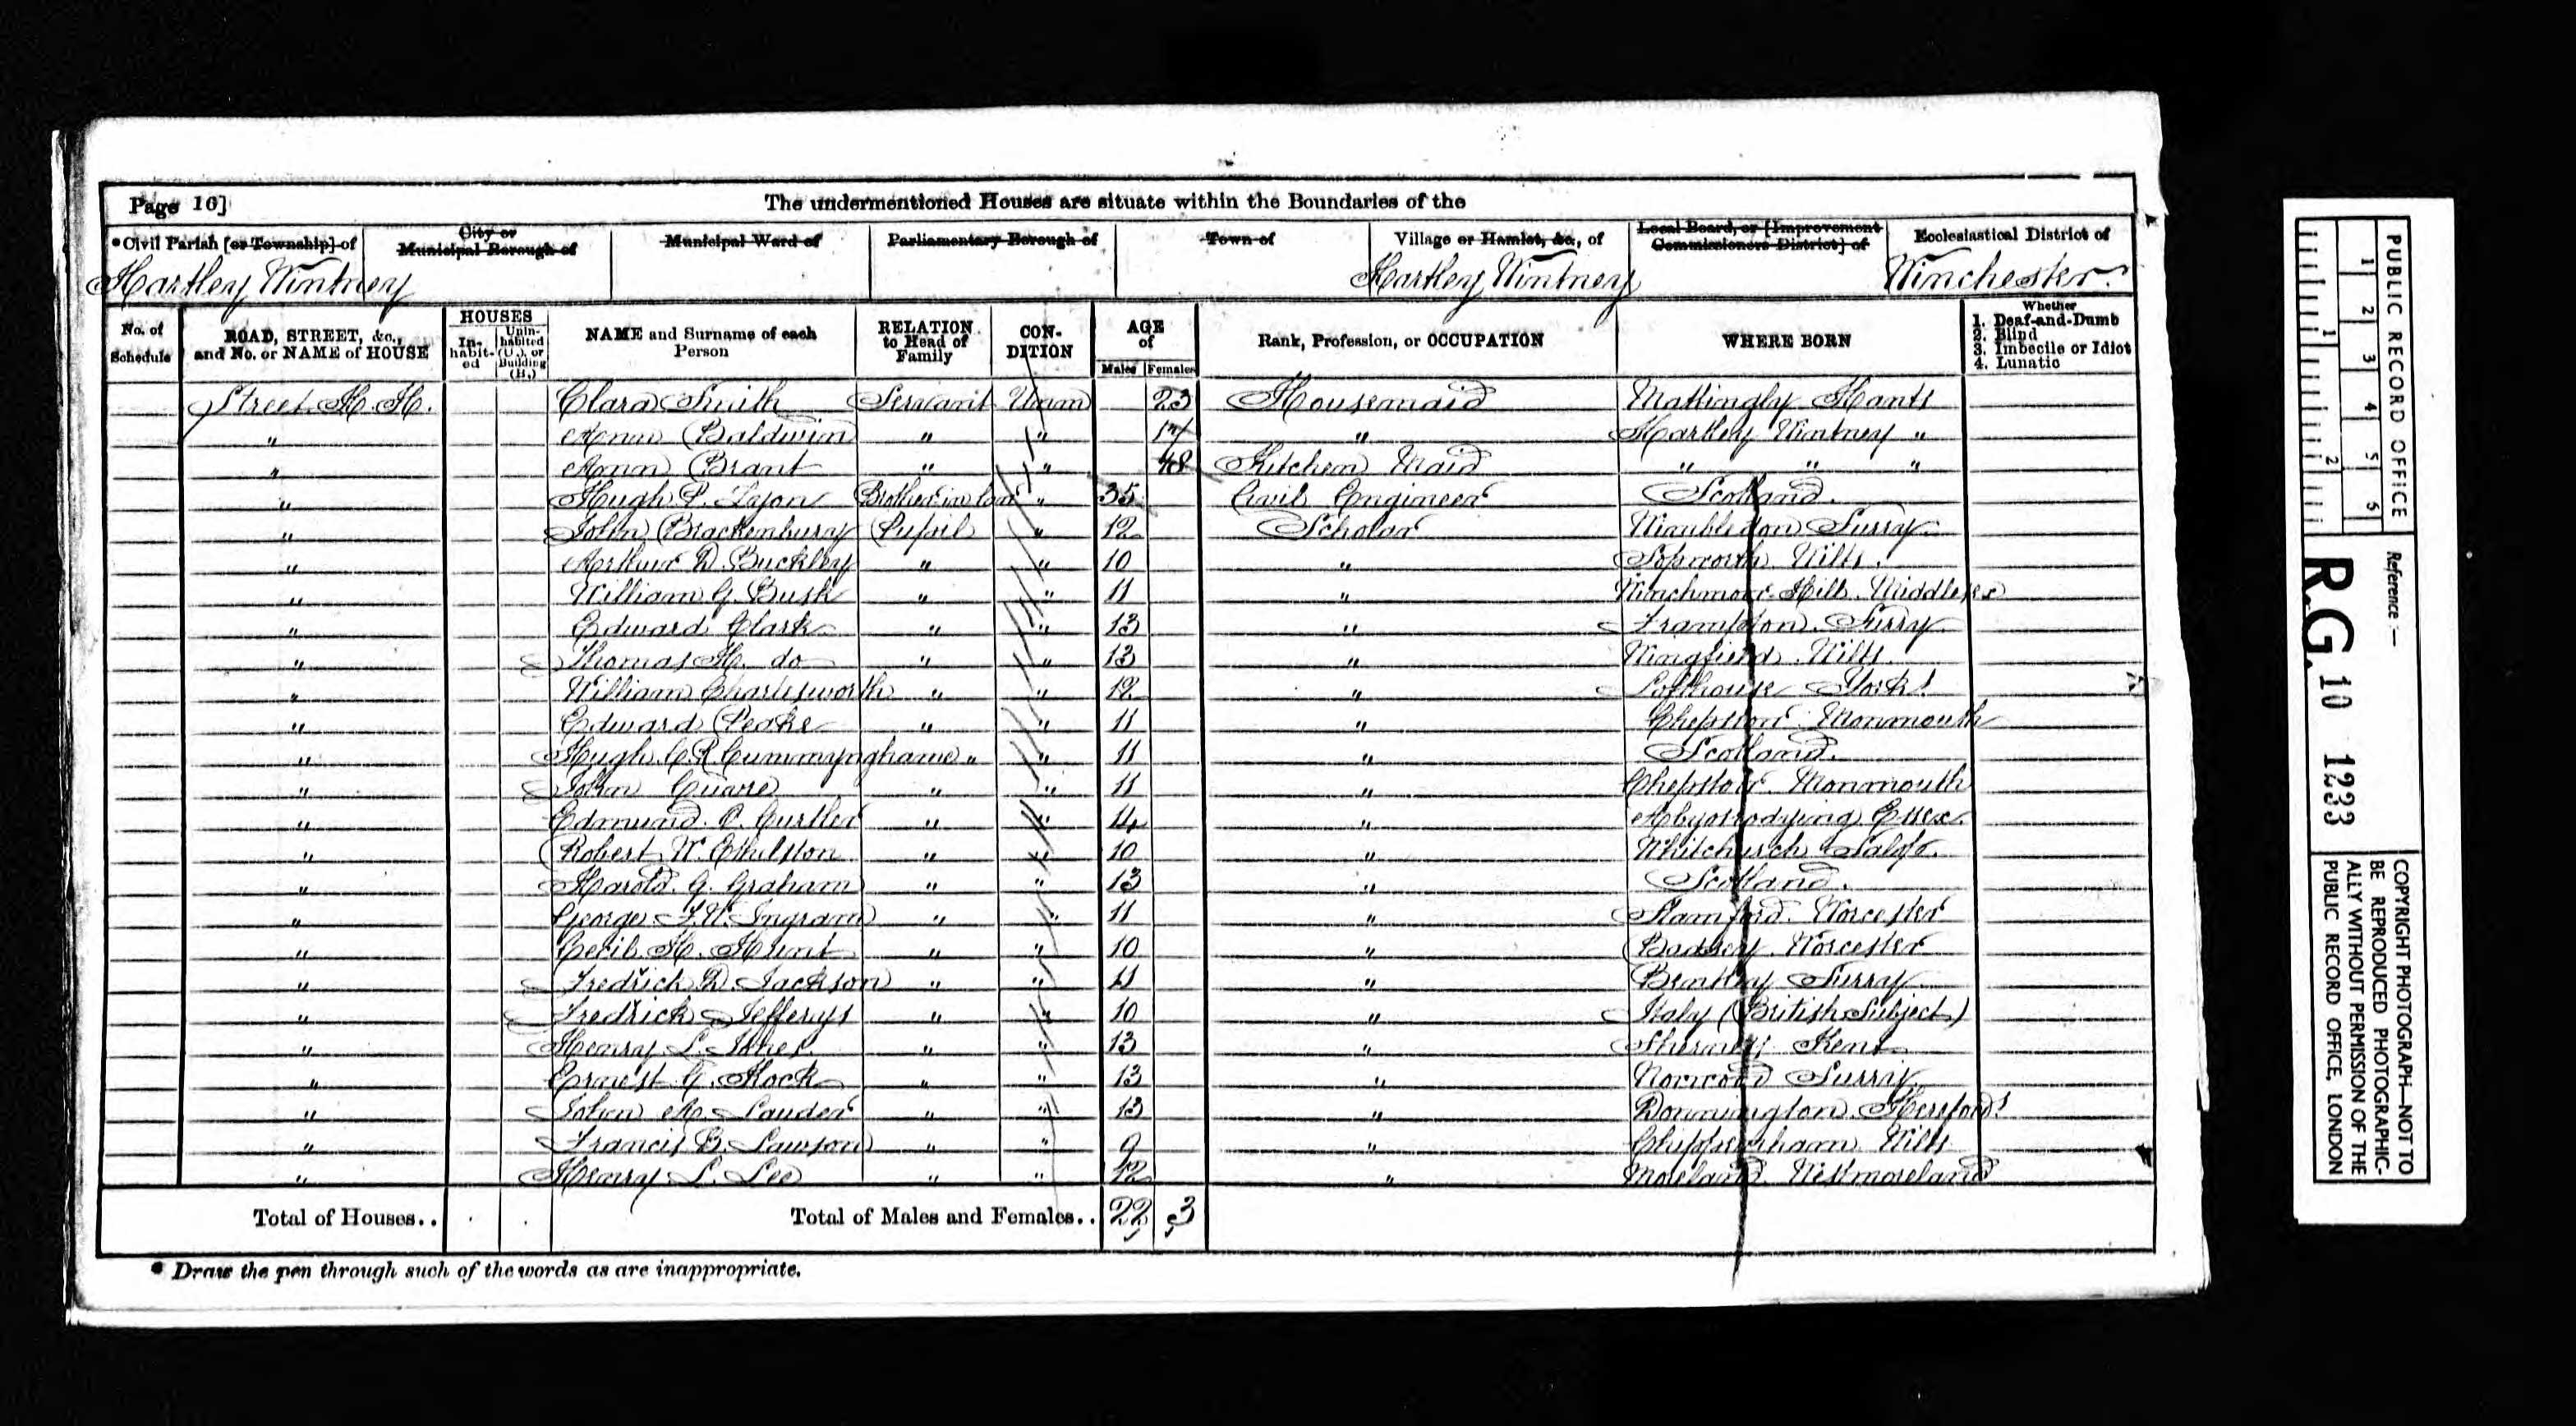 Page 16]
The undermentioned Houses are situate within the Boundaries of the
*Civil Parish [or Township] of
City or Municipal Borough of
Municipal Ward of
Parliamentary Borough of
Town of
Village or Hamlet, &c., of
Local Board, or [Improvement Commissioners District] of
Ecclesiastical District of
Hartley Wintney Hartley Wintney Winchester
No. of Schedule
ROAD, STREET, &c., and No. or NAME of HOUSE
HOUSES
In-habit-ed
Unin-habited (U.), or Building (B.)
NAME and Surname of each Person
RELATION to Head of Family
CON-DITION
AGE of
Males Females
Rank, Profession, or OCCUPATION
WHERE BORN
Whether
1. Deaf-and-Dumb
2. Blind
3. Imbecile or Idiot
4. Lunatic
Street H. H. Clara Smith Servant Unm 23 Housemaid Mattingly Hants
" Baldwin " " 17 " Hartley Wintney "
" Ann Brant " " 48 Kitchen Maid " " "
" Hugh P. Brother in law " 35 Civil Engineer Scotland.
" John Brackenbury Pupil " 12 Scholar Wimbledon Surry
" Arthur D. Buckley " " 10 " Sopworth Wilts.
" William G. Bush " " 11 " Winchmore Hill. Middlesex
" Edward Clark " " 13 " Surry
" Thomas H. do " " 13 " Wingfield. Wilts.
" William Charlesworth " " 12 " Lofthouse York
" Edward Peake " " 11 " Chepstow Monmouth
" Hugh. C. R. Cummynghame " " 11 " Scotland.
" John " " 11 " Chepstow. Monmouth
" Edmund. " " 14 " Essex.
" Robert W. " " 10 " Whitchurch Salop.
" Harold. G. Graham " " 13 " Scotland.
" George F. W. Ingram " " 11 " Stamford. Worcester
" Cecil H. Hunt " " 10 " Badsey. Worcester
" Fredrick D Jackson " " 11 " Bentley Surry
" Fredrick Jefferys " " 10 " Italy (British Subject)
" Henry L. Jones. " " 13 " Kent
" Ernest G. " " 13 " Norwood Surry
" John " " 13 " Donnington. Hereford
" Francis B. Lawson " " 9 " Chippenham Wilts
" Henry L. Lee " " 12 " Moreland. Westmoreland
Total of Houses..
Total of Males and Females.. 22 3
* Draw the pen through such of the words as are inappropriate.
PUBLIC RECORD OFFICE
1 2 3 4 5 6
1 2
Reference:—
R.G. 10 1233
COPYRIGHT PHOTOGRAPH—NOT TO
BE REPRODUCED PHOTOGRAPHIC-
ALLY WITHOUT PERMISSION OF THE
PUBLIC RECORD OFFICE, LONDON